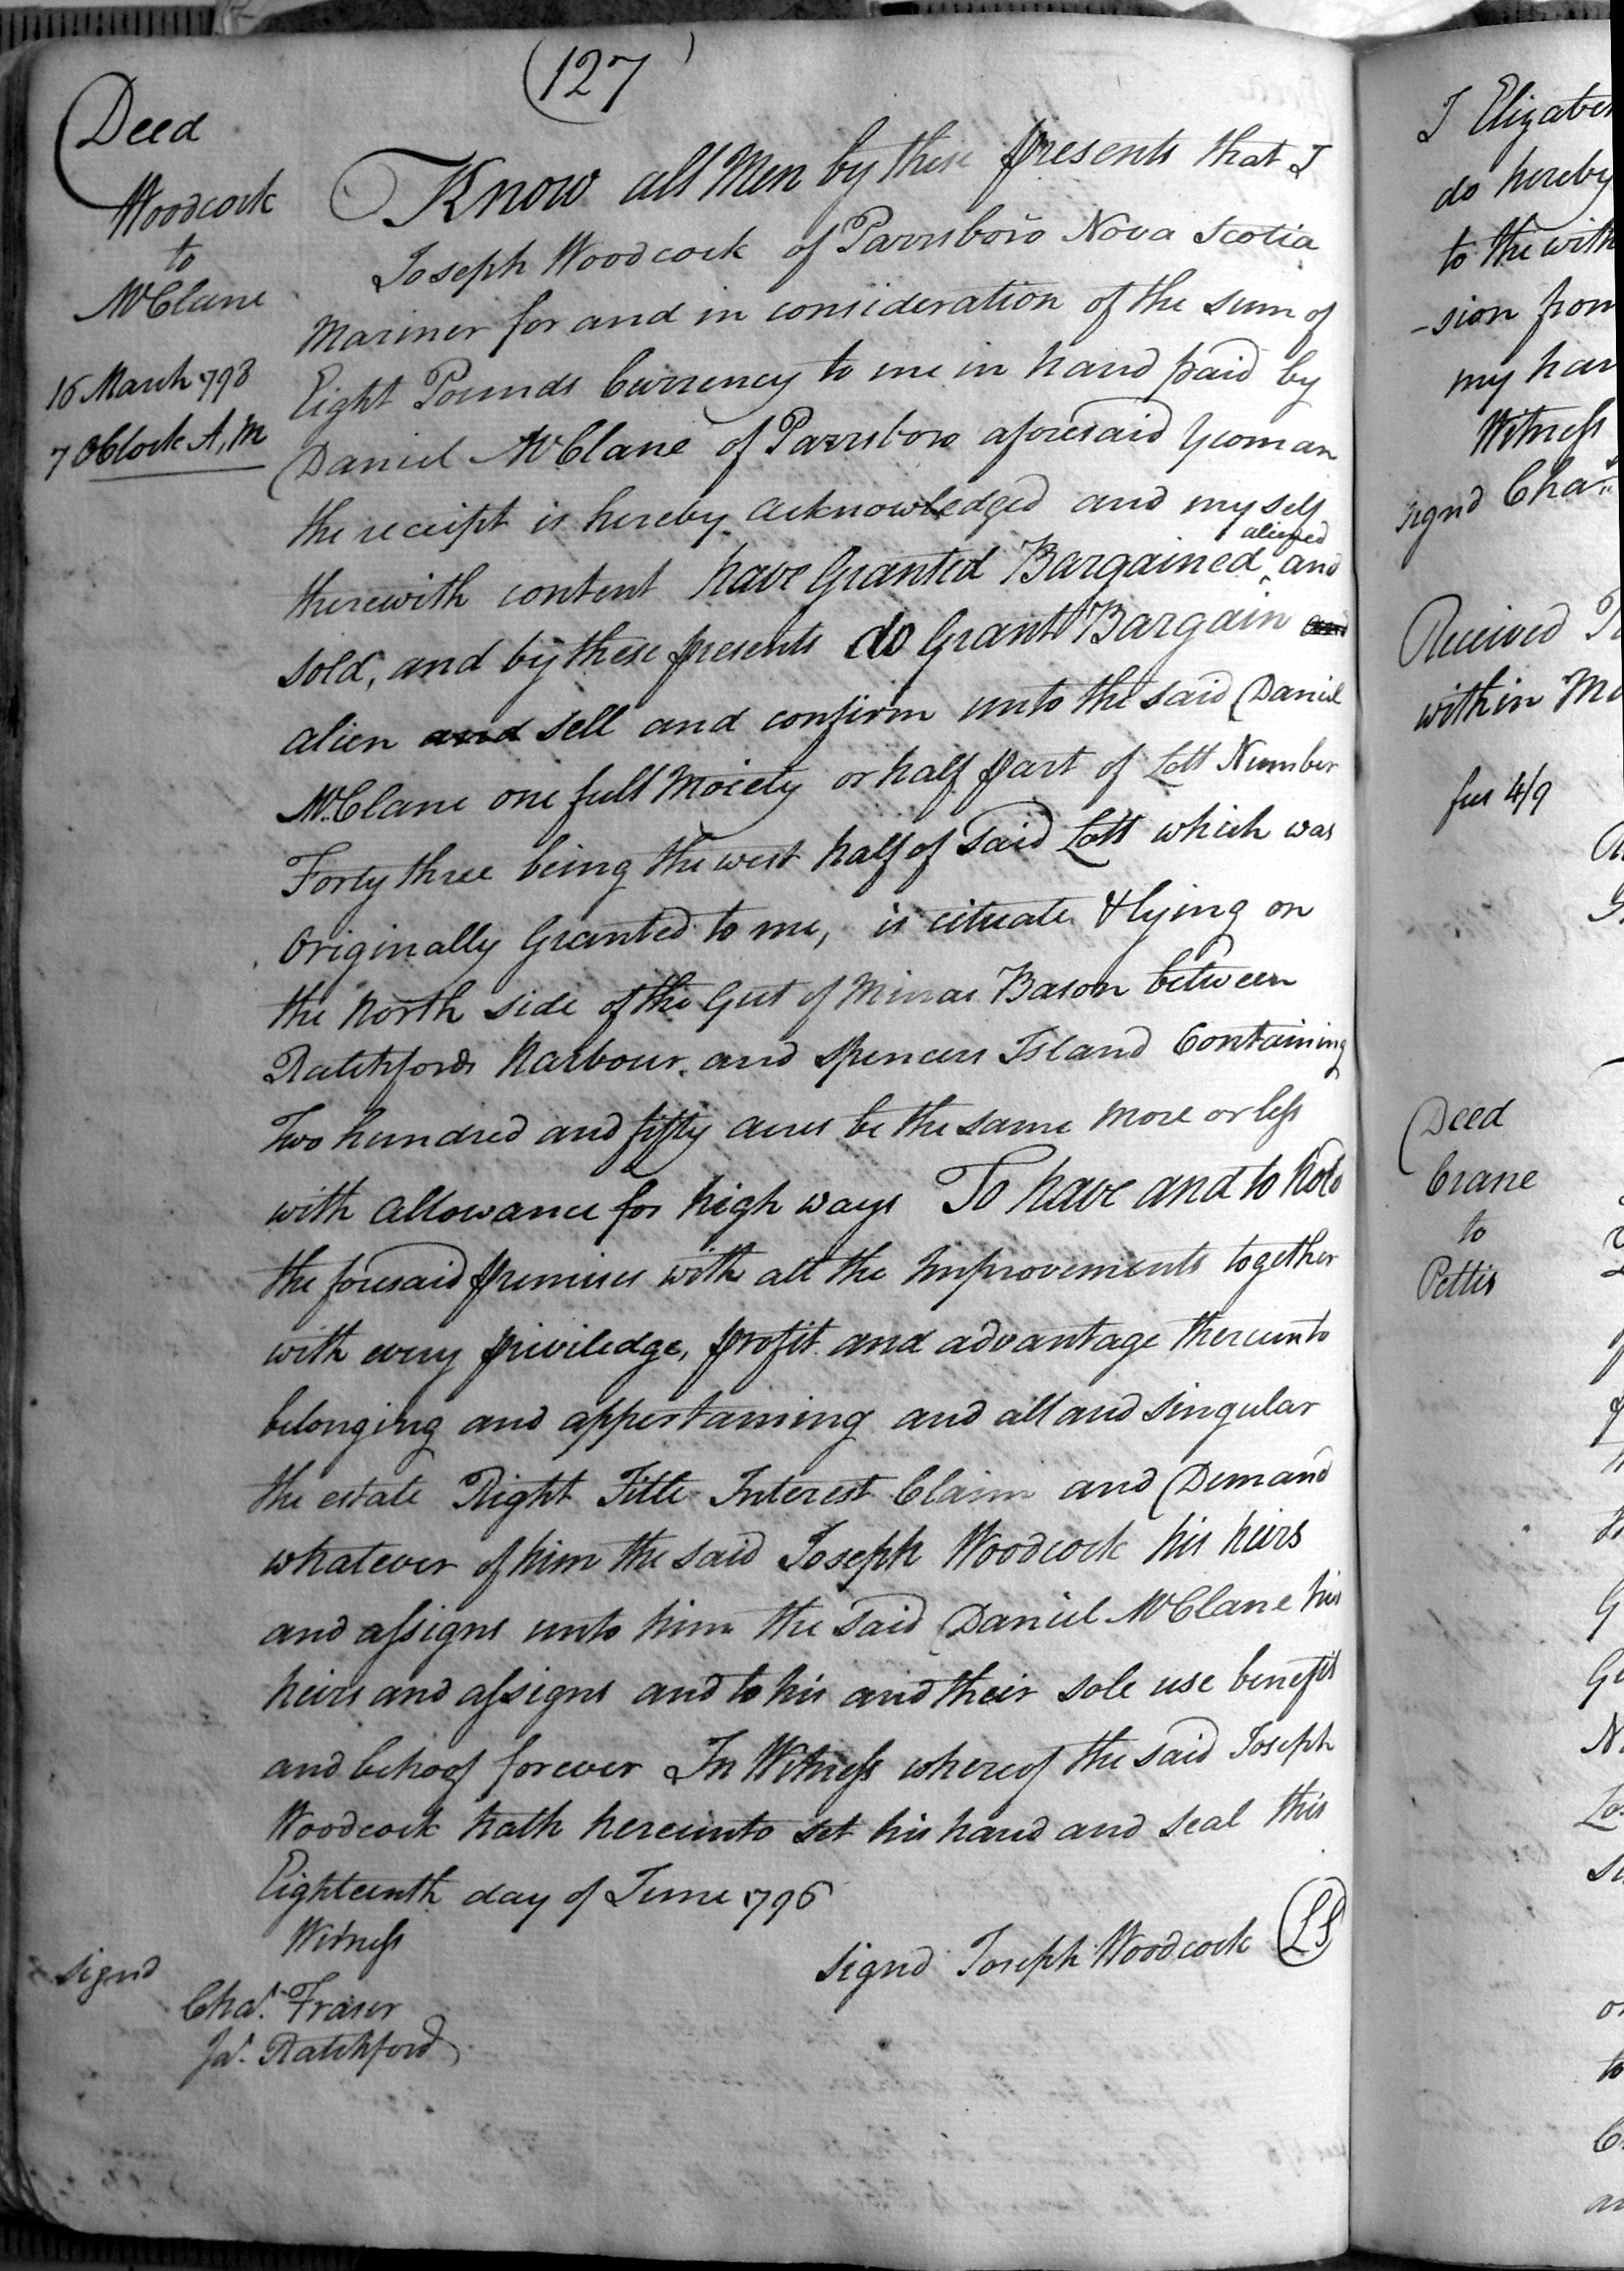 (127)
Deed
Woodcock
to
McClane
16 March 1798
7 OClock A,M
Know all Men by these presents that I
Joseph Woodcock of Parrsboro Nova Scotia
Mariner for and in consideration of the sum of
Eight Pounds Currency to me in hand paid by
Daniel McClane of Parrsboro aforesaid Yeoman
the receipt is hereby acknowledged and my self
therewith content have Granted Bargained aliened and
sold, and by these presents do Grant Bargain and
alien and sell and confirm unto the said Daniel
McClane one full Moiety or half part of Lott Number
Forty three being the west half of said Lott which was
Originally Granted to me, is cituate & lying on
the North side of the Gut of Minas Bason between
Ratchfords Harbour, and Spencers Island Containing
Two hundred and fifty acres be the same more or less
with allowance for high ways To have and to hold
the foresaid premises with all the Improvements together
with every priviledge, profit and advantage thereunto
belonging and appertaining and all and singular
the estate Right Title Interest Claim and Demand
whatever of him the said Joseph Woodcock his heirs
and assigns unto him the said Daniel McClane his
heirs and assigns and to his and their sole use benefit
and behoof forever In Witness whereof the said Joseph
Woodcock hath hereunto set his hand and seal this
Eighteenth day of June 1796
Witness
signd Joseph Woodcock (LS)
signd
Chas. Fraser
Jas. Ratchford
I Elizabe
do hereby
to the with
-sion from
my han
Witness
signd Chas
Received
within
fees 4/9
Deed
Crane
to
Pettis